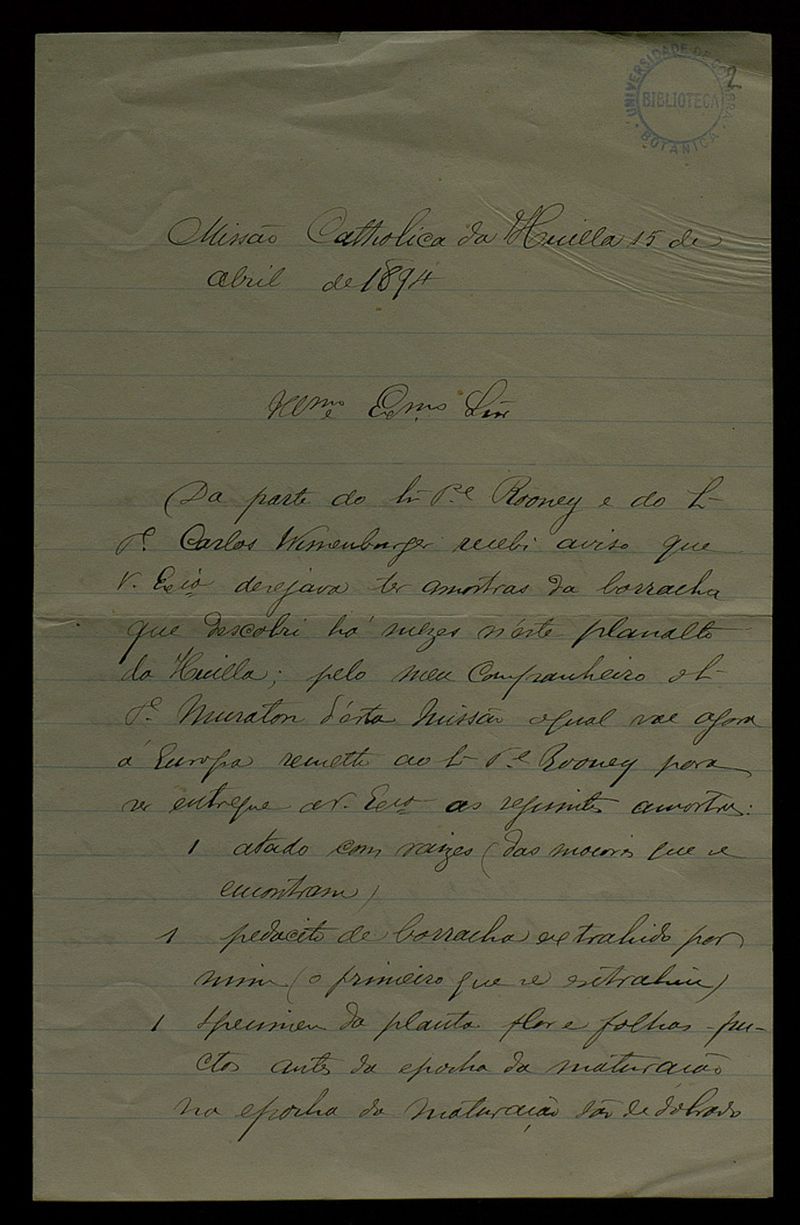 UNIVERSIDADE DE COIMBRA
BIBLIOTECA
BOTANICA
2
Missão Catholica da Huilla 15 de
abril de 1894
Illmo Exmo Snr
Da parte do Sr Pe Rooney e do Sr
Pe Carlos Wunenburger recebi aviso que
V. Excia desejava ter amostras da borracha
que descobri há mezes n'este planalto
da Huilla; pelo meu companheiro o Sr
Pe Muraton d'esta Missão o qual vae agora
á Europa remetti ao Sr Pe Rooney para
ser entregue a V. Excia as seguintes amostras:
1 atado com raizes (das maiores que se
encontram)
1 pedacito de borracha extrahido por
mim (o primeiro que se extrahiu)
1 specimen da planta flor e folhas - fru-
ctos antes da epocha da maturação
na epocha da maturação são de dobrado